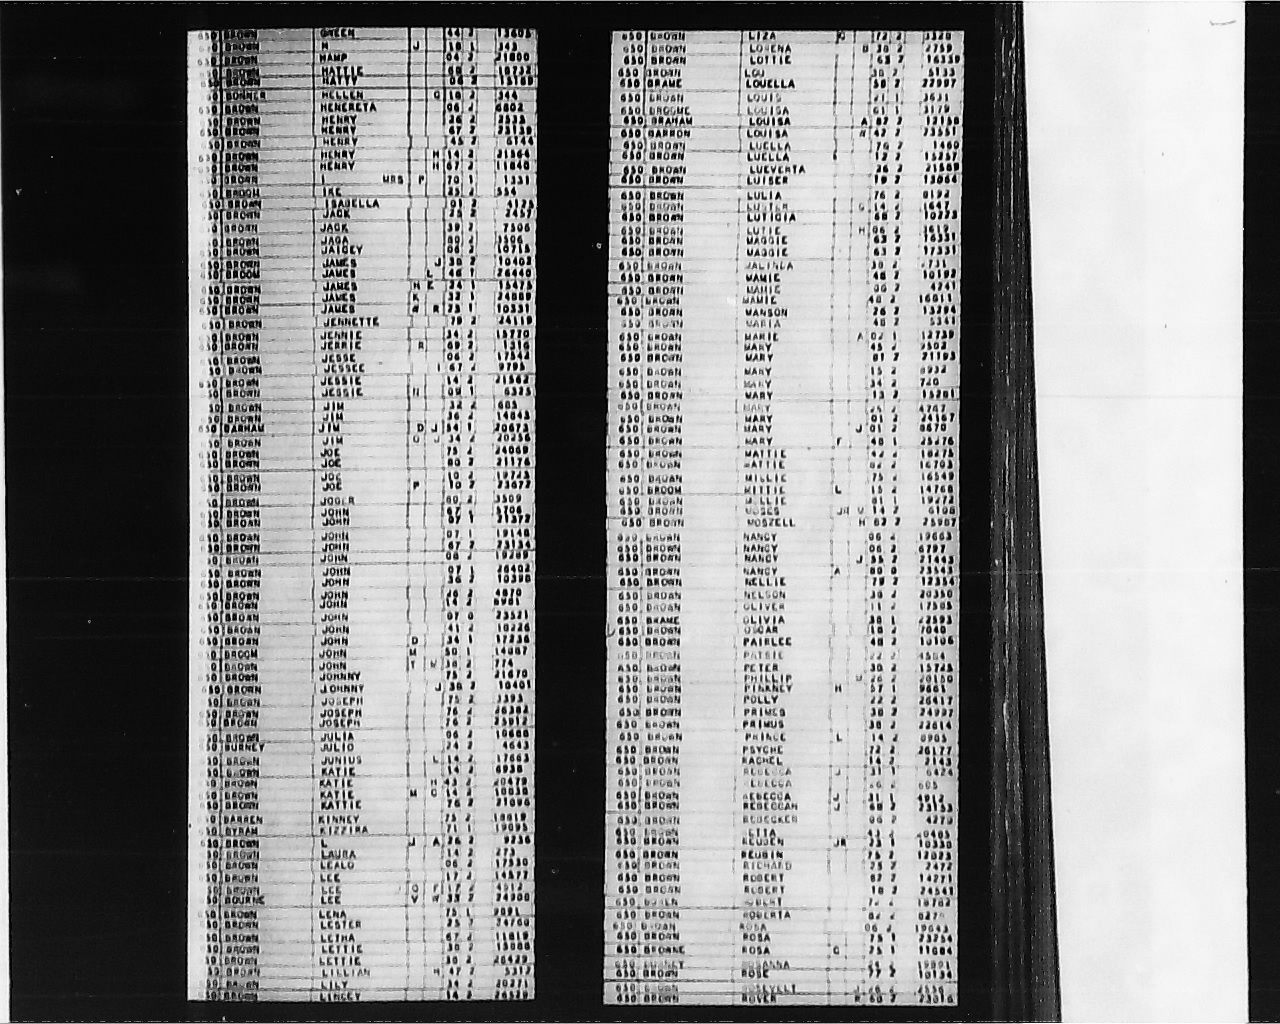 650 BROWN GREEN 44 2 13605
BROWN H J 18 1 343
BROWN HAMP 04 2 21800
BROWN HATTIE 68 2 10732
BROWN HATTY 06 2
BONNER HELLEN 18 2 344
BROWN HENERETA 06 2 6802
BROWN HENRY 26 2
BROWN HENRY 67 2 23139
BROWN HENRY 45 2 6144
BROWN HENRY H 14 2 21564
BROWN HENRY H 67 2 11840
BROWN MRS P 70 1 1331
BROOM IKE 25 2 554
BROWN ISABELLA 01 2 4125
BROWN JACK 25 2 2457
BROWN JACK 39 2 7506
BROWN JAGA 80 2
BROWN JAICEY 06 2 10715
BROWN JAMES J 30 2 10402
BROOM JAMES L 46 1 26440
BROWN JAMES H E 34 1 15475
BROWN JAMES K 32 1 24088
BROWN JAMES W R 73 1 10331
BROWN JENNETTE 79 2 24119
BROWN JENNIE 34 2 15770
BROWN JERRIE R 69 2 1316
BROWN JESSE 06 2 17542
BROWN JESSEE I 67 2 9795
BROWN JESSIE 14 2 21562
BROWN JESSIE N 09 1 6325
BROWN JIM 32 2 605
BROWN JIM 36 2 14043
BARHAM JIM D J 54 1 20673
BROWN JIM O J 34 2 20256
BROWN JOE 75 2 24069
BROWN JOE 80 2 21176
BROWN JOE 10 2 19723
BROWN JOE P 10 2 23677
BROWN JOGER 60 2 3509
BROWN JOHN 67 1 5706
BROWN JOHN 07 1 21372
BROWN JOHN 07 1 19148
BROWN JOHN 67 2 23134
BROWN JOHN 06 2
BROWN JOHN 07 1 16402
BROWN JOHN 36 2 10390
BROWN JOHN 26 2 4870
BROWN JOHN 14 2 6961
BROWN JOHN 07 0 23521
BROWN JOHN 41 2 10226
BROWN JOHN D 34 1 17236
BROOM JOHN M 50 1 14067
BROWN JOHN T W 38 2 774
BROWN JOHNNY 75 2 21670
BROWN JOHNNY J 30 2 10401
BROWN JOSEPH 75 2 3393
BROWN JOSEPH 76 2 26382
BROWN JOSEPH 76 2 25912
BROWN JULIA 06 2 10688
BURNEY JULIO 24 2 4643
BROWN JUNIUS L 14 2 17663
BROWN KATIE 14 2 6938
BROWN KATIE H 43 2 20479
BROWN KATIE M G 14 2 10038
BROWN KATTIE 76 2 21096
BARREN KINNEY 75 2 10619
BYRAM KIZZIRA 71 1 19095
BROWN L J A 26 2 9236
BROWN LAURA 14 2 273
BROWN LEALO 06 2 17530
BROWN LEE 17 2 14577
BROWN LEE O F 17 2 4512
BOURNE LEE V W 33 2 24300
BROWN LENA 75 1 9091
BROWN LESTER 25 2 24760
BROWN LETHA 67 2 11819
BROWN LETTIE 30 2
BROWN LETTIE 30 2 20429
BROWN LILLIAN H 47 2 5312
BROWN LILY 34 2 20271
BROWN LINCEY 14 2 26529
650 BROWN LIZA 72 2 3320
650 BROWN LORENA B 30 2 2759
650 BROWN LOTTIE 63 2 16339
650 BROWN LOU 30 2 5133
650 BRAME LOUELLA 58 2 22997
650 BROWN LOUIS 21 1 3631
650 BROOME LOUISA 61 1 3179
650 BRAHAM LOUISA A 07 2 12158
650 BARRON LOUISA W 42 2 23551
650 BROWN LUELLA 76 2 11460
650 BROWN LUELLA 12 2 15257
650 BROWN LUEVERTA 26 2 21568
650 BROWN LUISER 19 2 13064
650 BROWN LULIA 76 2 8192
650 BROWN LUSTER 58 2 1647
650 BROWN LUTICIA 58 2 10223
650 BROWN LUTIE H 06 2 1612
650 BROWN MAGGIE 63 2 16331
650 BROWN MAGGIE 63 2 17331
650 BROWN MALINDA 30 2 1731
650 BROWN MAMIE 46 2 10192
650 BROWN MAMIE 06 2 4741
650 BROWN MAMIE 40 2 16011
650 BROWN MANSON 26 2 13294
650 BROWN MARIA 40 2 5341
650 BROWN MARIE A 02 1 12739
650 BROWN MARY 45 2 9502
650 BROWN MARY 81 2 21193
650 BROWN MARY 15 2 8932
650 BROWN MARY 34 2 720
650 BROWN MARY 13 2 15281
650 BROWN MARY 25 2 4767
650 BROWN MARY 01 2 24167
650 BROWN MARY J 01 2 8670
650 BROWN MARY F 40 1 25276
650 BROWN MATTIE 42 2 10275
650 BROWN MATTIE 82 2 16703
650 BROWN MILLIE 75 2 16549
650 BROOM MITTIE L 15 2 14768
650 BROWN MOLLIE 61 1 19272
650 BROWN MOSES JR W 14 2 6106
650 BROWN MOSZELL H 63 2 25967
650 BROWN NANCY 06 2 19663
650 BROWN NANCY 06 2 6797
650 BROWN NANCY J 35 2 21443
650 BROWN NANCY A 80 2 23543
650 BROWN NELLIE 79 2 12354
650 BROWN NELSON 30 2 20350
650 BROWN OLIVER 11 2 17505
650 BRAME OLIVIA 38 1 22593
650 BROWN OSCAR 10 2 7040
650 BROWN PAIRLEE 40 2 10106
650 BROWN PATSIE 22 2 1504
650 BROWN PETER 30 2 15725
650 BROWN PHILLIP W 26 2 20150
650 BROWN PINKNEY H 57 1 9661
650 BROWN POLLY 22 2 26417
650 BROWN PRIMES 38 2 24997
650 BROWN PRIMUS 30 2 22614
650 BROWN PRINCE L 14 2 6905
650 BROWN PSYCHE 72 2 26177
650 BROWN RACHEL 14 2 2143
650 BROWN REBECCA J 31 1 6424
650 BROWN REBECCA 36 2 605
650 BROWN REBECCA J 31 1 4912
650 BROWN REBECCAH J 48 1
650 BROWN REBECKER 06 2 4270
650 BROWN RETTA 43 2 10465
650 BROWN REUBEN JR 73 1 10330
650 BROWN REUBIN 75 2 12023
650 BROWN RICHARD 25 2 2472
650 BROWN ROBERT 67 2 14271
650 BROWN ROBERT 10 2 24541
650 ROBERT 72 2
650 BROWN ROBERTA 62 2
650 BROWN ROSA 06 2 19043
650 BROWN ROSA 75 1 23254
650 BROWNE ROSA G 75 1 11084
650 BURNEY ROSANNA 24 1
650 BROWN ROSE 77 2 10134
650 BROWN ROSEVELT J 26 2 2556
650 BROWN ROVER R 60 2 23016